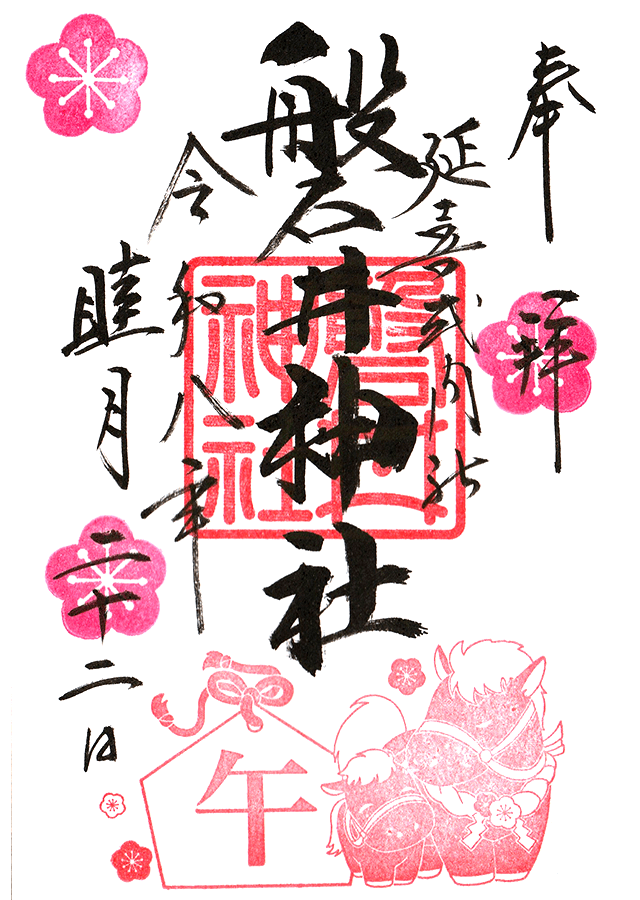 奉拝
延喜式内社
磐井神社
令和八年
睦月二十二日
磐井
神社
午